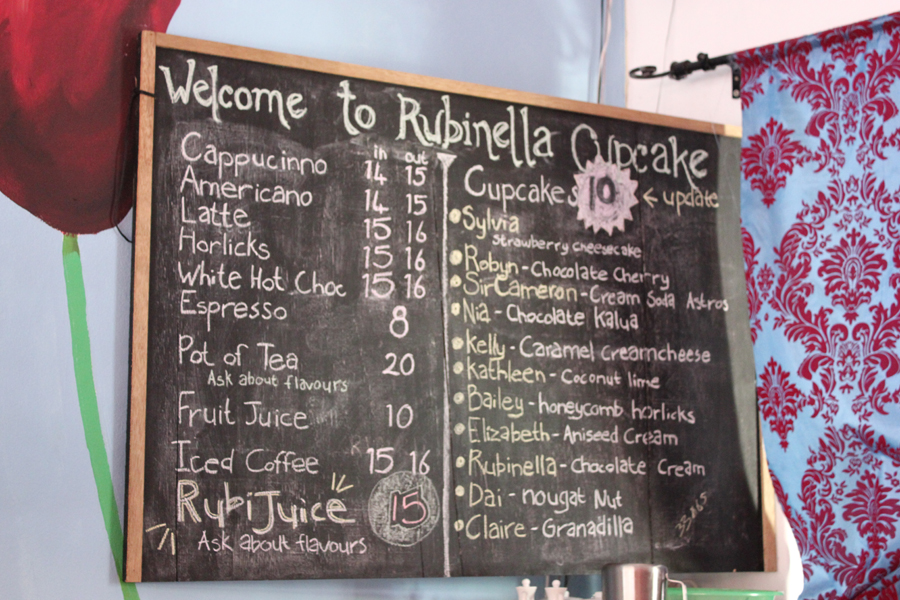 Welcome to Rubinella Cupcake
in out
Cappucinno 14 15
Americano 14 15
Latte 15 16
Horlicks 15 16
White Hot Choc 15 16
Espresso 8
Pot of Tea 20
Ask about flavours
Fruit Juice 10
Iced Coffee 15 16
RubiJuice 15
Ask about flavours
Cupcakes 10 ← update
Sylvia
Strawberry cheesecake
Robyn - Chocolate Cherry
Sir Cameron - Cream Soda Astros
Nia - Chocolate Kalua
Kelly - Caramel creamcheese
Kathleen - Coconut lime
Bailey - honeycomb horlicks
Elizabeth - Aniseed Cream
Rubinella - Chocolate Cream
Dai - nougat Nut
Claire - Granadilla